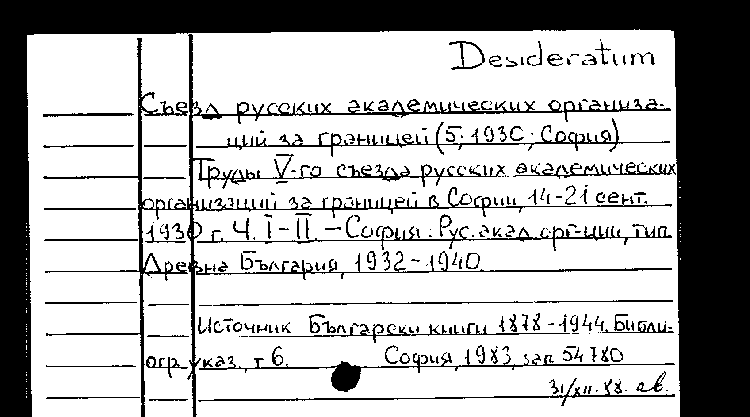 Desideratum
Съезд русских академических организа-
ций за границей (5; 1930; София)
Труды V-го съезда русских академических
организаций за границей в Софии, 14-21 сент.
1930 г. Ч. I-II. - София: Рус. акад. орг-ции, тип.
Древна България, 1932-1940.
Источник Български книги 1878-1944. Библи-
огр. указ., т 6. София, 1983, зап 54780
31/XII.88. ав.